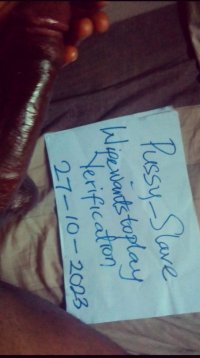 Pussy_Slave
Wifewantstoplay
Verification
27-10-2023